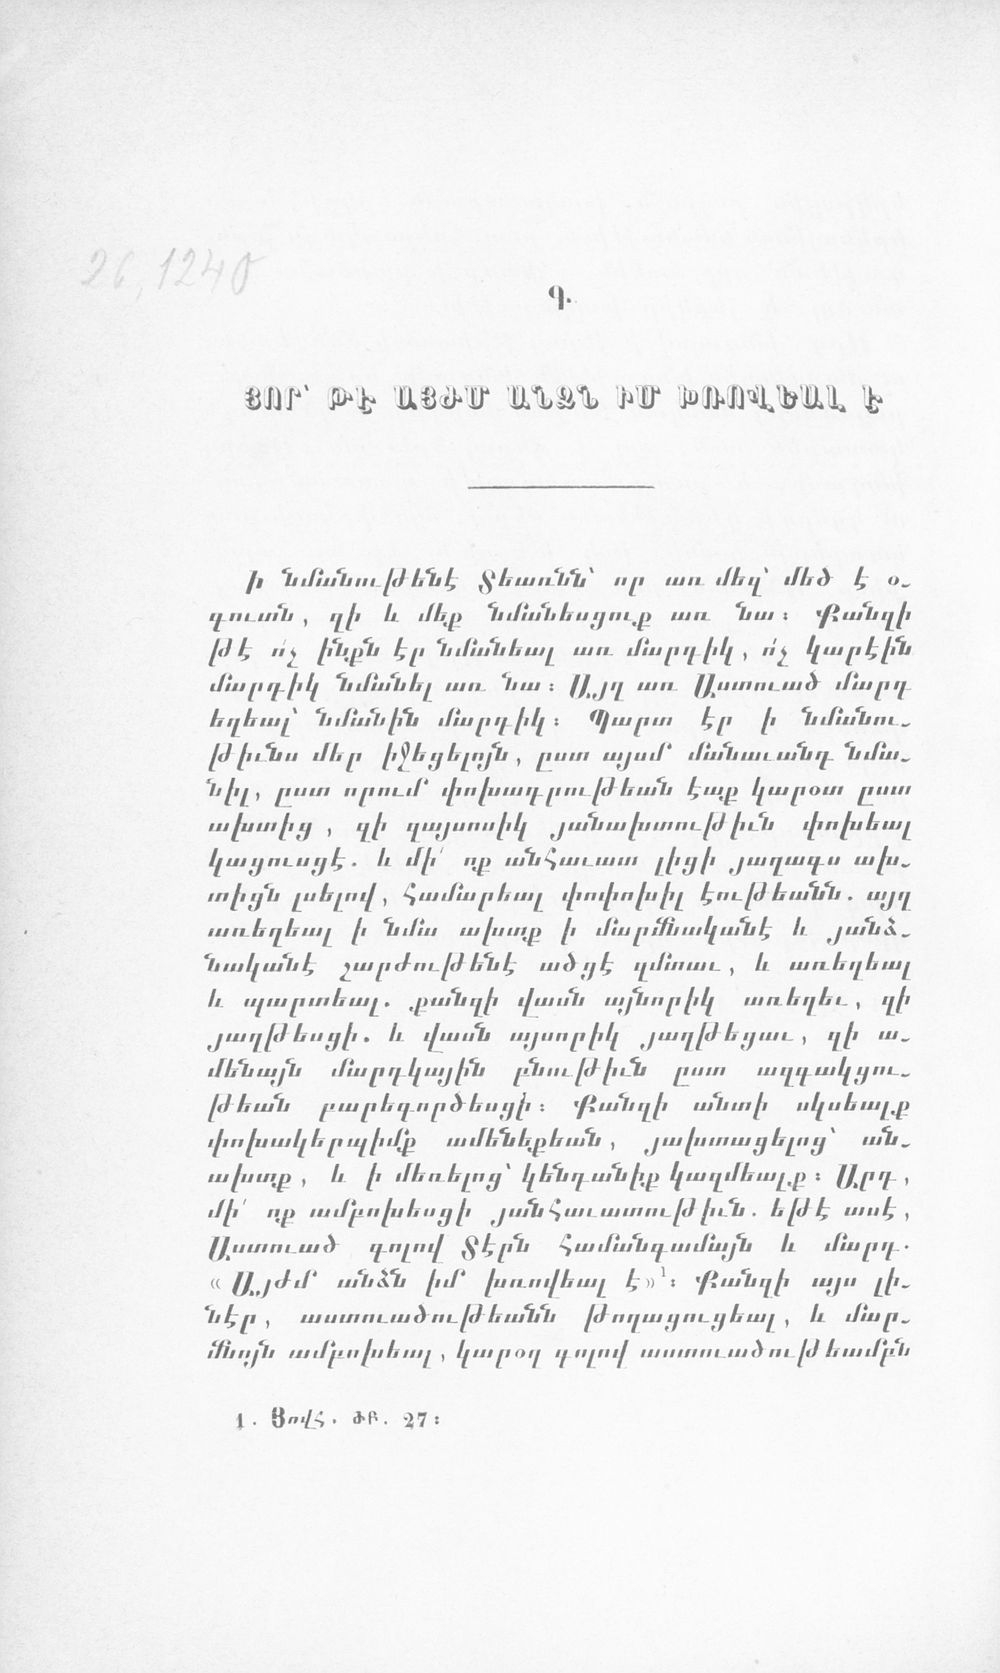 26,1240
Գ.
ՅՈՐ՝ ԹԷ ԱՅԺՄ ԱՆՁՆ ԻՄ ԽՌՈՎԵԱԼ Է
Ի նմանութենէ Տեառնն՝ որ առ մեզ՝ մեծ է օ-
գուտն, զի և մեք նմանեսցուք առ նա։ Քանզի
թէ ո՛չ ինքն էր նմանեալ առ մարդիկ, ո՛չ կարէին
մարդիկ նմանել առ նա։ Այղ առ Աստուած մարդ
եղեալ՝ նմանին մարդիկ։ Պարտ էր ի նմանու-
թիւնս մեր իջեցելոյն, ըստ այսմ մանաւանդ նմա-
նիլ, ըստ որում փոխադրութեան էաք կարօտ ըստ
ախտից, զի զայսոսիկ յանախտութիւն փոխեալ
կացուսցէ. և մի՛ ոք անհաւատ լիցի յաղագս ախ-
տիցն լսելով, համարեալ փոփոխիլ էութեանն. այղ
առեղեալ ի նմա ախտք ի մարմնականէ և յանձ-
նականէ շարժութենէ ածցէ զմտաւ, և առեղեալ
և պարտեալ. քանզի վասն այնորիկ առեղեւ, զի
յաղթեսցի. և վասն այսորիկ յաղթեցաւ, զի ա-
մենայն մարդկային բնութիւն ըստ ազգակցու-
թեան բարեգործեսցի։ Քանզի անտի սկսեալք
փոխակերպիմք ամենեքեան, յախտացելոց՝ ան-
ախտք, և ի մեռելոց՝ կենդանիք կազմեալք։ Արդ,
մի՛ ոք ամբոխեսցի յանհաւատութիւն. եթէ ասէ,
Աստուած գոլով Տէրն համանգամայն և մարդ.
« Այժմ անձն իմ խռովեալ է»¹։ Քանզի այս լի-
նէր, աստուածութեանն թողացուցեալ, և մար-
մնոյն ամբոխեալ, կարօղ գոլով աստուածութեամբն
1. Յովհ. ԺԲ. 27։